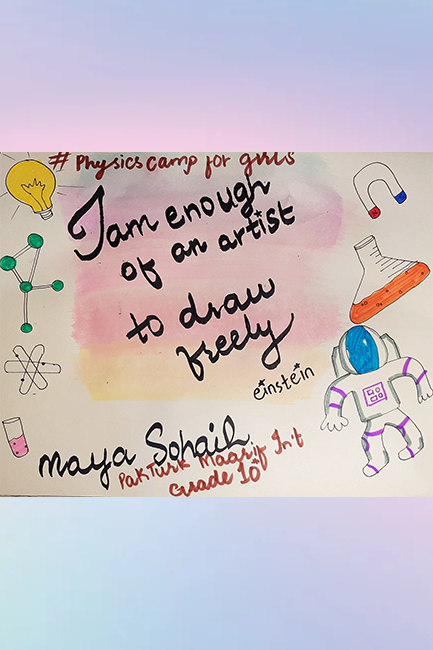 # Physics camp for girls
I am enough
of an artist
to draw
freely
einstein
Maya Sohail
PakTurk Maarif Int
Grade 10